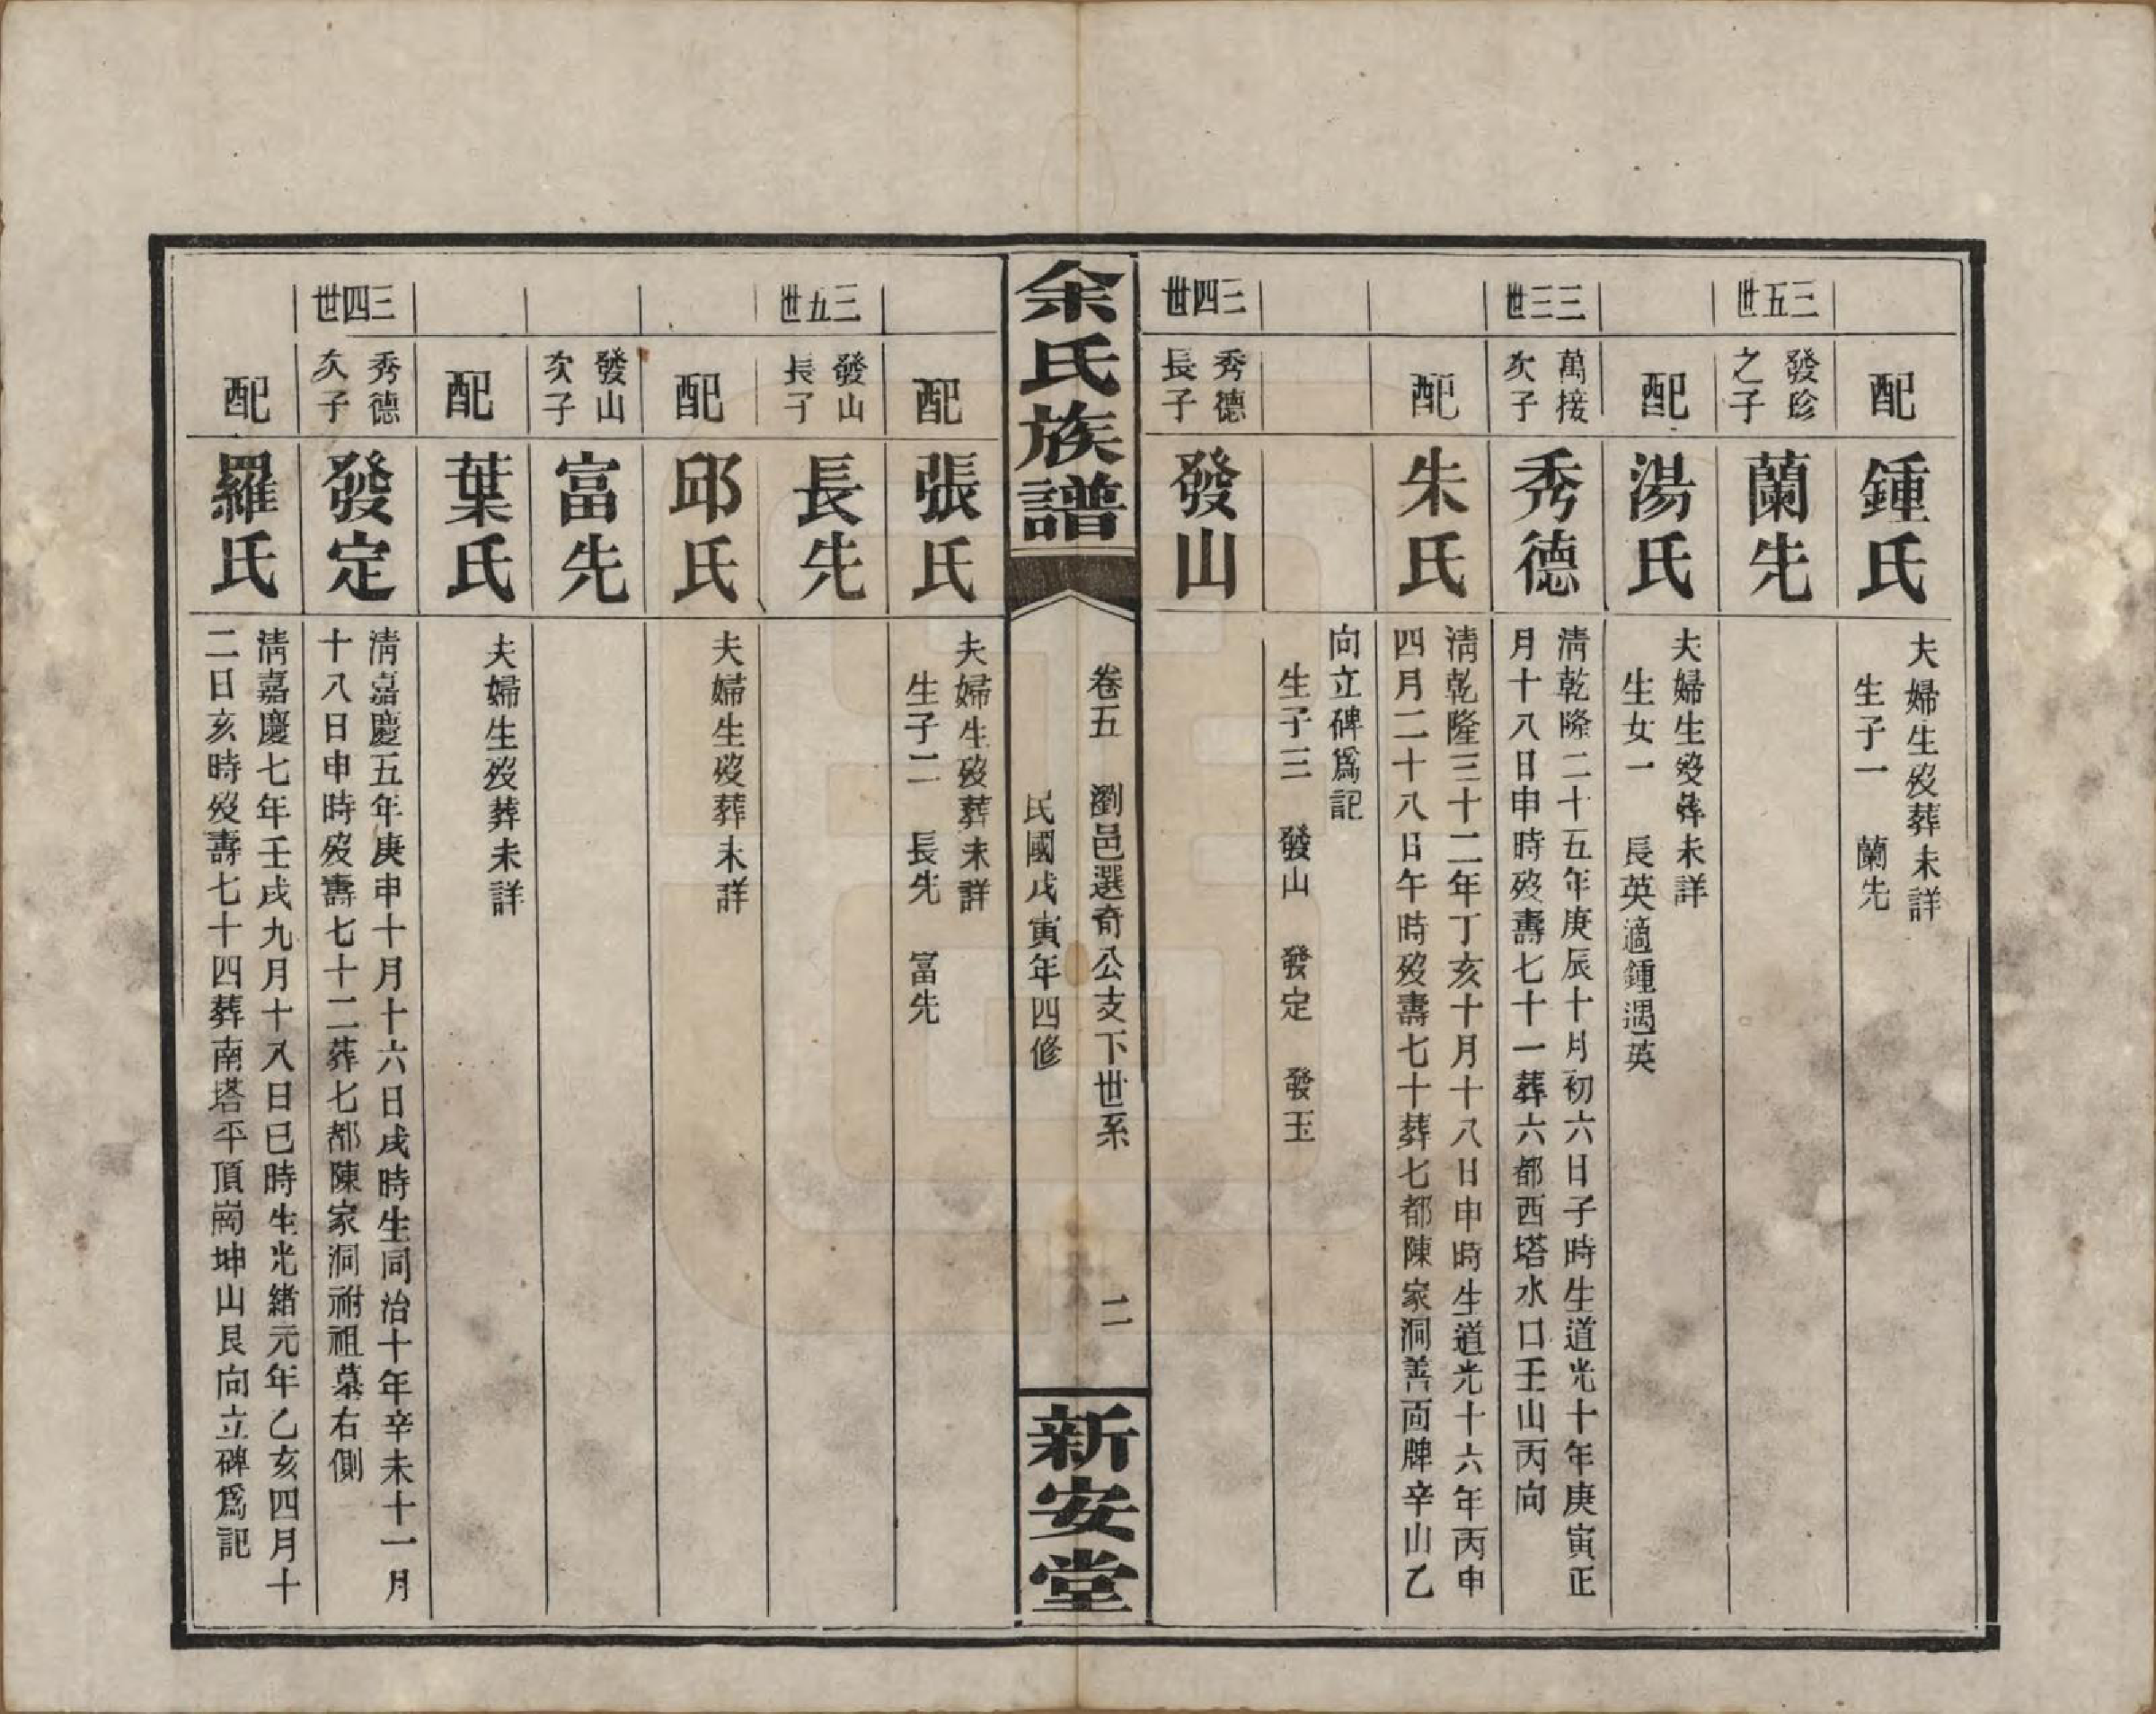 配
鍾氏
夫婦生歿葬未詳
生子一　蘭先
三五世
發珍
之子
蘭先
配
湯氏
夫婦生歿葬未詳
生女一　長英適鍾遇英
三三世
萬接
次子
秀德
清乾隆二十五年庚辰十月初六日子時生道光十年庚寅正
月十八日申時歿壽七十一葬六都西塔水口壬山丙向
配
朱氏
清乾隆三十二年丁亥十月十八日申時生道光十六年丙申
四月二十八日午時歿壽七十葬七都陳家洞善面牌辛山乙
向立碑爲記
生子三　發山　發定　發玉
三四世
秀德
長子
發山
余氏族譜
卷五　瀏邑選奇公支下世系
民國戊寅年四修
二
新安堂
配
張氏
夫婦生歿葬未詳
生子二　長先　富先
三五世
發山
長子
長先
配
邱氏
夫婦生歿葬未詳
發山
次子
富先
配
葉氏
夫婦生歿葬未詳
三四世
秀德
次子
發定
清嘉慶五年庚申十月十六日戌時生同治十年辛未十一月
十八日申時歿壽七十二葬七都陳家洞祔祖墓右側
配
羅氏
清嘉慶七年壬戌九月十八日巳時生光緒元年乙亥四月十
二日亥時歿壽七十四葬南塔平頂崗坤山艮向立碑爲記